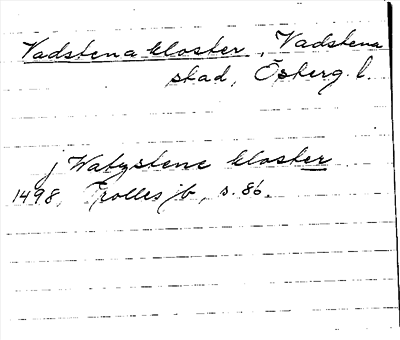 Vadstena kloster, Vadstena
stad, Österg. l.
j Watzstene kloster
1498, Trolles jb, s. 86.